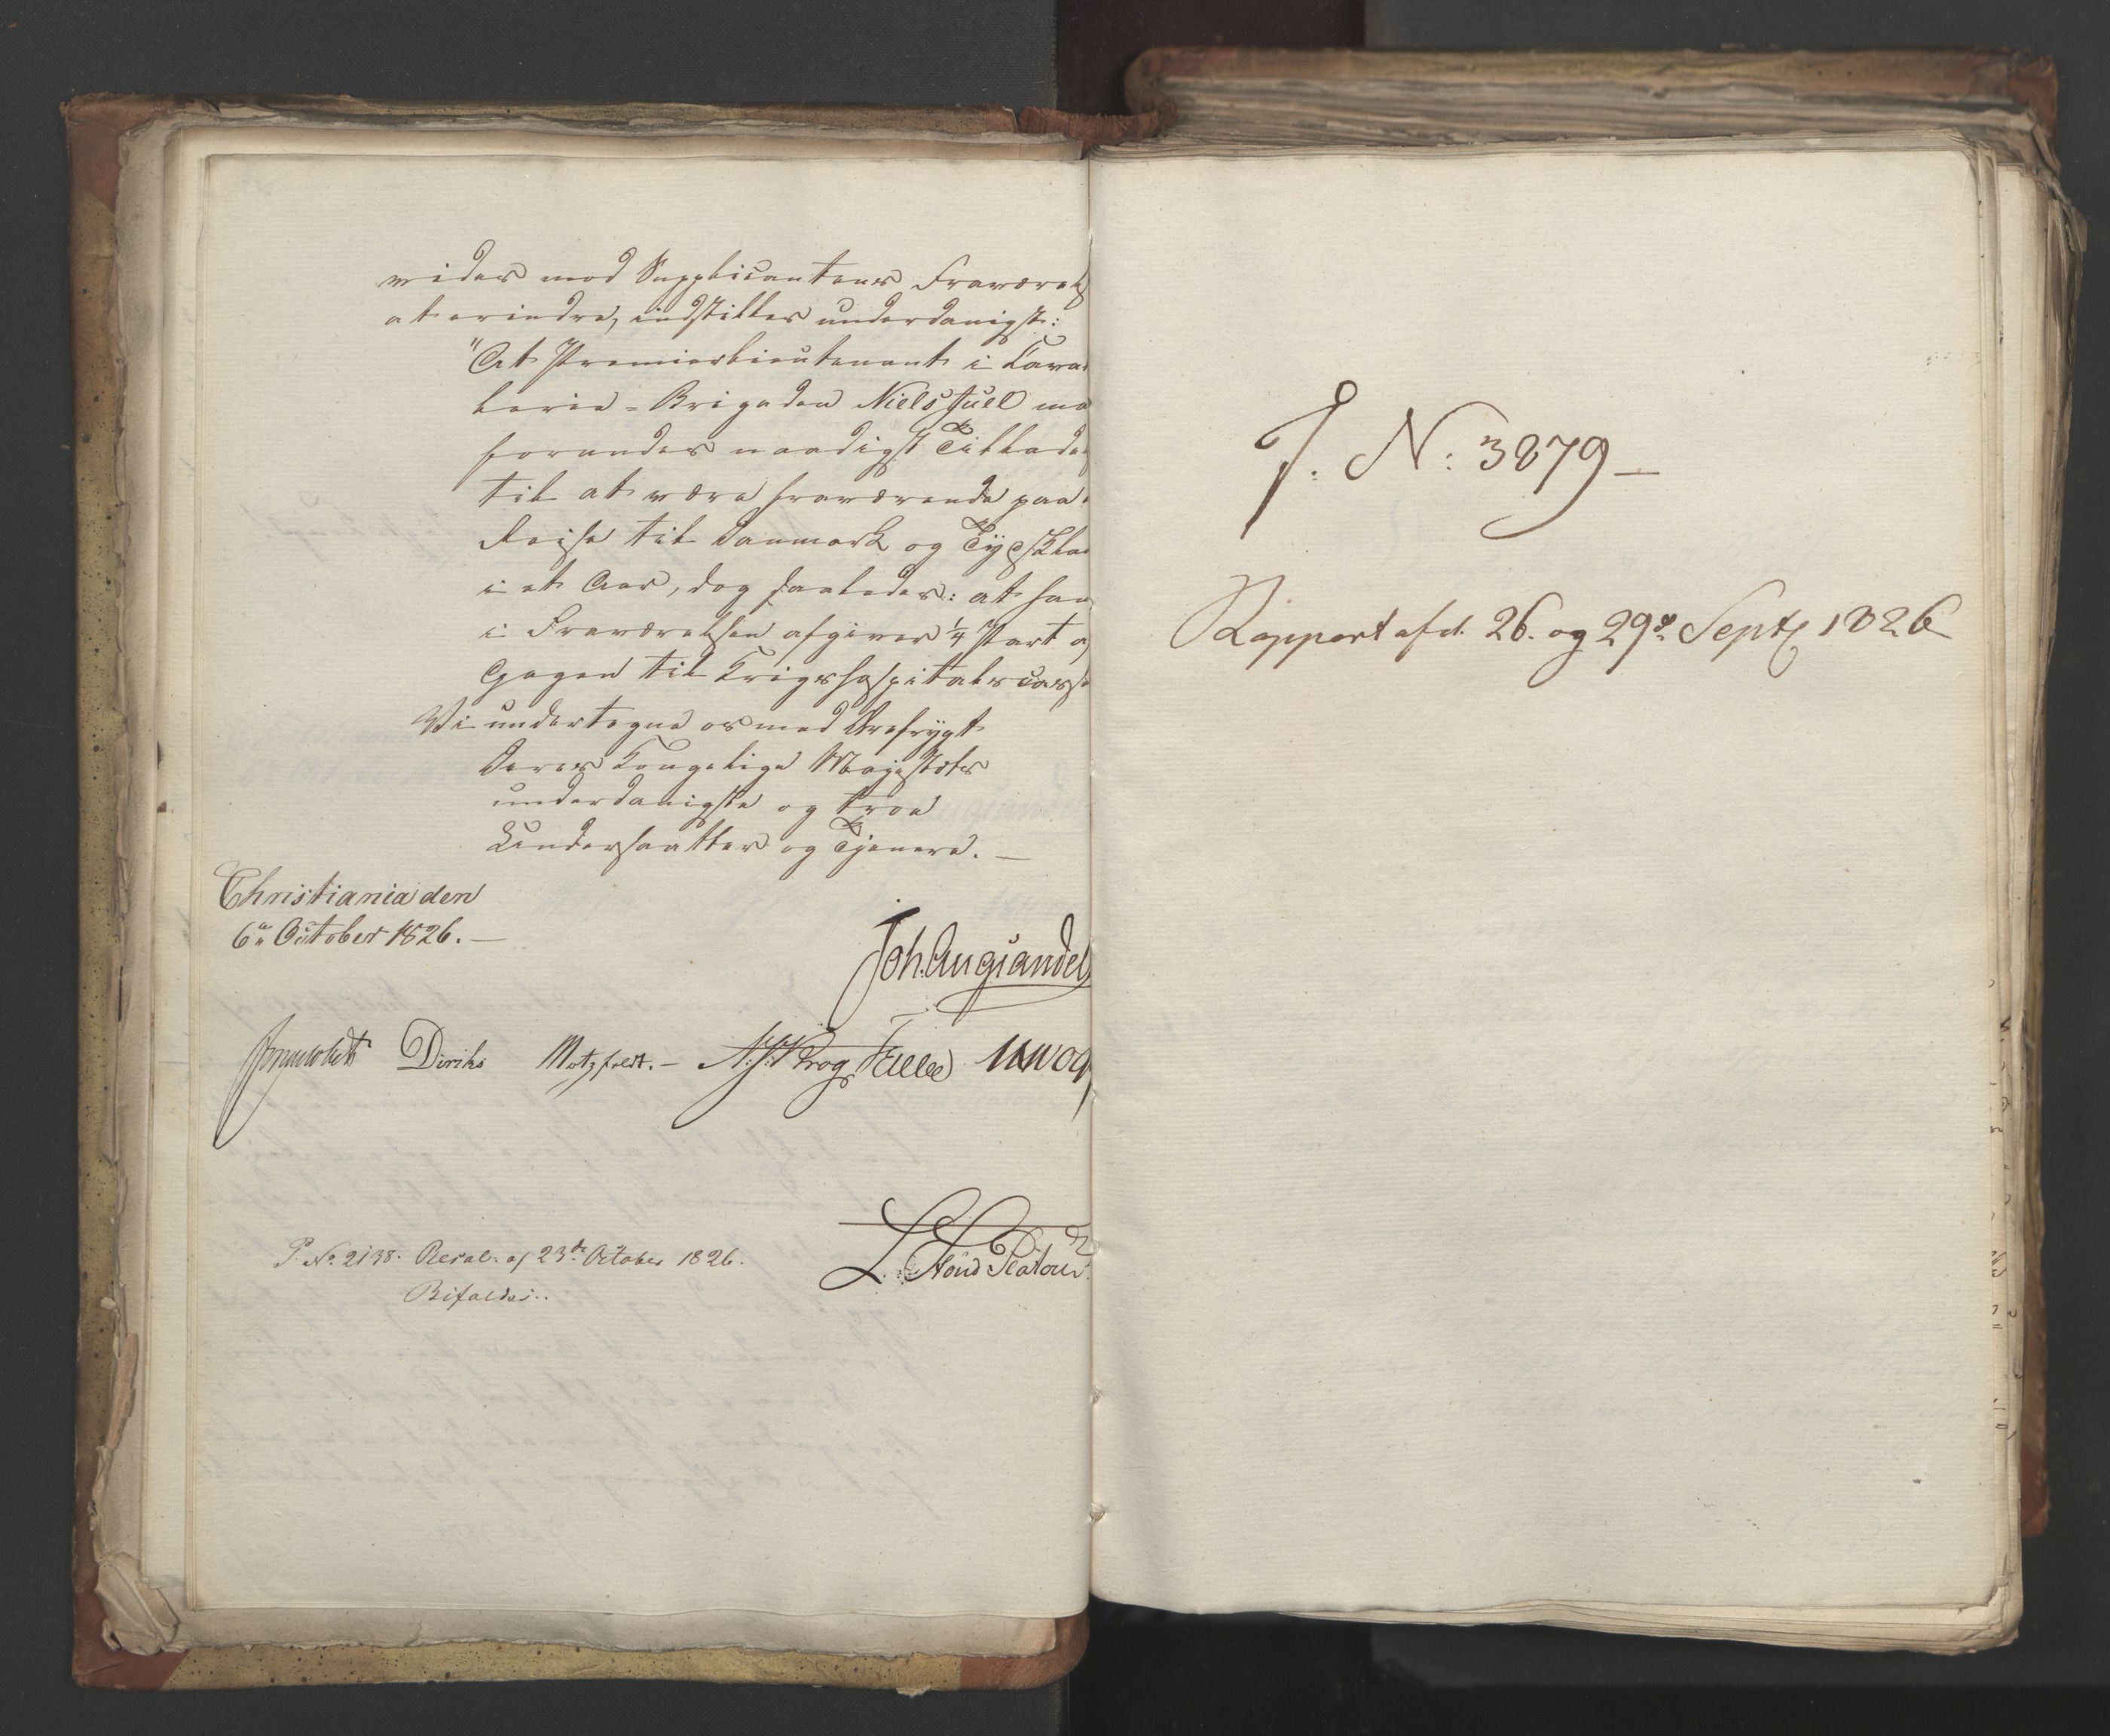 vider mod Supplicantens Fraværels
at erindre, indstilles underdanigst:
"At Premierlieutenant i Caval
lerie-Brigaden Niels Juel ma
forundes naadigst Tillade
til at være fraværende paa
Reise til Danmark og Tydsklan
i et Aar, dog saaledes: at han
i Fraværelsen afgiver 1/4 Part a
Gagen til Krigshospitalscasse
Vi undertegne os med Ærefrygt
Deres Kongelige Majestæts
underdanigste og troe
Undersaatter og Tjenere. —
Christiania den
6te October 1826. —
Joh. Aug Sandels
Diriks Motzfeldt. – Krog
P. No. 2138. Resol. af 23de October 1826.
Bifaldes..
J. N: 3879 —
Rapport af d. 26. og 29de Septr 1826